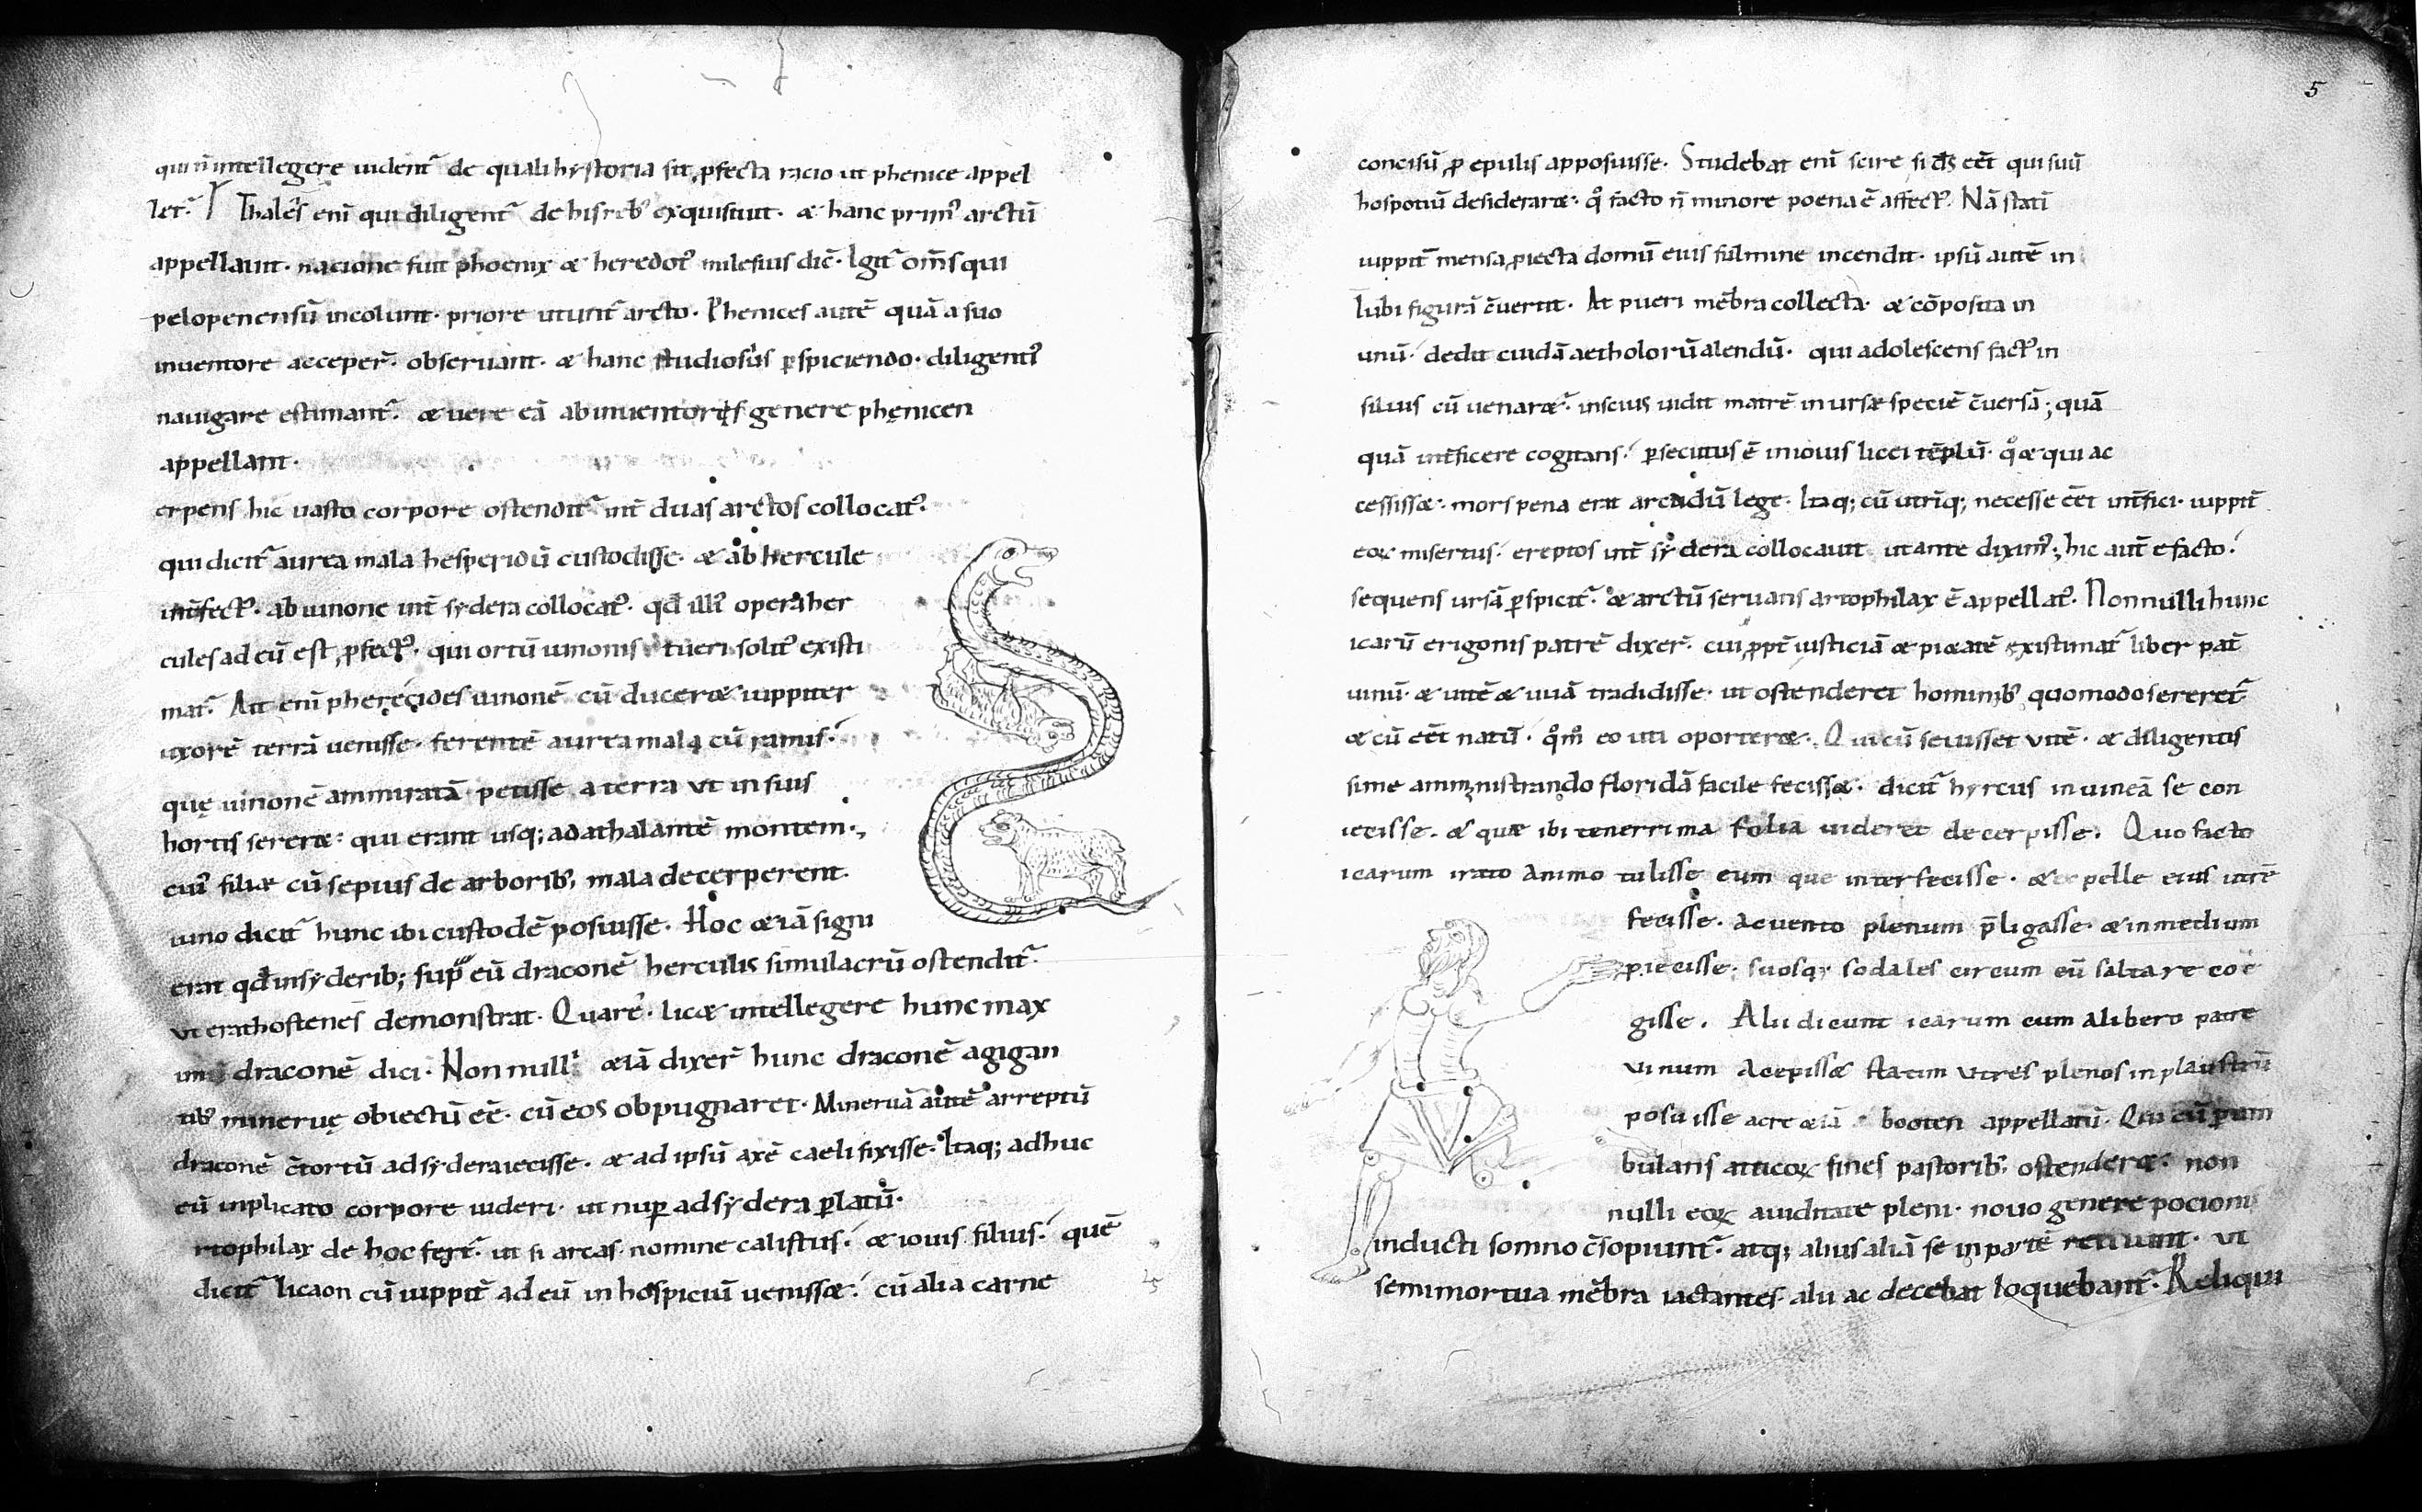 qui n̄ intellegere uident᷑ de quali hystoria sit ꝓfecta racio ut phenice appel
let᷑ Thales enī qui diligent᷑ de his reb; exquisiuit· & hanc prim᷒ arctū
appellauit· nacione fuit phoenix & heredot᷒ milesius dic̄· Igit᷑ om̄s qui
pelopenensū incolunt· priore utunt᷑ arcto· Phenices autē quā a suo
inuentore acceper̄· obseruant· & hanc studiosius ꝑspiciendo· diligenti᷒
nauigare estimant᷑· & uere eā ab inuentoris genere phęnicen
appellant·
erpens hic uasto corpore ostendit᷑ int̄ duas arctos collocat᷒·
qui dicit᷑ aurea mala hesperidū custodisse· & ab hercule
int̄fect᷒· ab iunone int̄ sydera collocat᷒· qđ illi᷒ opera her
cules ad eū est ꝓfect᷒· qui ortū iunonis tueri solit᷒ existi
mat᷑· Ait enī pherecides iunonē cū ducer& iuppiter
uxorē terrā uenisse· ferentē aurea mala cū ramis·
quę iunonē ammiratā petisse a terra ut in suis
hortis serer&· qui erant usq; ad athalantē montem·,
cui᷒ filiæ cū sepius de arborib; mala decerperent·
iuno dicit᷑ hunc ibi custodē posuisse· Hoc &iā signi
erat qđ in syderib; sup eū draconē herculis simulacrū ostendit᷑·
ut erathostenes demonstrat· Quare· lic& intellegere hunc max
im̄ draconē dici· Nonnulli &iā dixer̄ hunc draconē a gigan
tib; mineruę obiectū eē· cū eos obpugnaret· Mineruā autē arreptū
draconē c̄tortū ad sydera iecisse· & ad ipsū axē caeli fixisse· Itaq; adhuc
eū inplicato corpore uideri· ut nuꝑ ad sydera ꝑlatū·
rtophilax de hoc fert᷑· ut si arcas nomine calistus· & iouis filius· quē
dicit᷑ licaon cū iuppit̄ ad eū in hospiciū uenisse· cū alia carne
5
concisū ꝓ epulis apposuisse· Studebat enī scire si d̄s eēt qui suū
hospotiū desiderar&· q̊ facto n̄ minore poena ē affect᷒· Nā stati
iuppit̄ mensa ꝓiecta domū eius fulmine incendit· ipsū autē in
lubi figurā c̄uertit· At pueri mēbra collecta· & cōposita in
unū· dedit cuidā aetholorū alendū· qui adolescens fact᷒ in
siluis cū uenar&᷑· inscius uidit matrē in ursæ speciē c̄uersā; quā
quā int̄ficere cogitans· ꝑsecutus ē in iouis licei tēplū· q̊ & qui ac
cessiss&· mors pena erat arcadū lege· Itaq; cū utrīq; necesse eēt int̄fici· iuppit̄
eoꝝ misertus· ereptos int̄ sydera collocauit ut ante dixim᷒; hic aut̄ e facto·
sequens ursā ꝑspicit᷑· & arctū seruans artophilax ē appellat᷒· Nonnulli hunc
icarū erigonis patrē dixer̄· cui ꝓpt̄ iusticiā & pi&atē existimat᷑ liber pat̄
uinū· & uitē & uuā tradidisse· ut ostenderet hominib; quomodo sereret᷑
& cū eēt natū· q̊m̊ eo uti oporter&· Qui cū seuisset uitē· & diligentis
sime amministrando floridā facile feciss&· dicit᷑ hyrcus in uineā se con
iecisse· & quæ ibi tenerrima folia uideret decerpisse· Quo facto
icarum irato animo tulisse eum que interfecisse· & e pelle eius utrē
fecisse· ac uento plenum p̄ligasse· & in medium
piecisse· suosq; sodales circum eū saltare coe
gisse· Alii dicunt icarum cum a libero patre
uinum acepiss& statim utres plenos in plaustrū
posuisse acre &iā booten appellatū· Qui cū ꝑam
bulans atticoꝝ fines pastorib; ostender&· non
nulli eoꝝ auiditate pleni· nouo genere pocionis
inducti somno c̄sopiunt᷑· atq; alius aliā se in partē reiiunt· ut
semimortua mēbra iactantes· alii ac decebat loquebant᷑· Reliqui